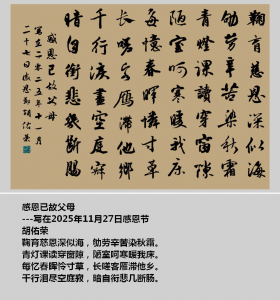 鞠育慈恩深似海
劬勞辛苦染秋霜
青燈課讀穿窗隙
陋室呵寒暖我床
每憶春暉怜寸草
長嗟客雁滯他鄉
千行淚盡空庭寂
暗自銜悲幾斷腸
感恩已故父母
寫在二〇二五年十一月
二十七日感恩節 胡佑荣
感恩已故父母
---写在2025年11月27日感恩节
胡佑荣
鞠育慈恩深似海，劬劳辛苦染秋霜。
青灯课读穿窗隙，陋室呵寒暖我床。
每忆春晖怜寸草，长嗟客雁滞他乡。
千行泪尽空庭寂，暗自衔悲几断肠。